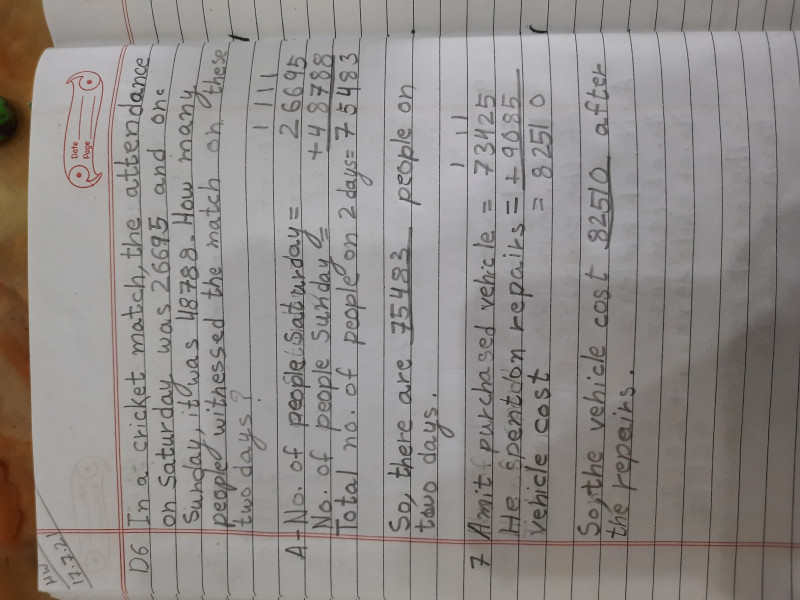 HW
17.7.21
Date
Page
Q6 In a cricket match, the attendance
on Saturday was 26695 and on
Sunday, it was 48788. How many
people witnessed the match on these
two days?
1 1 1 1
A- No. of people Saturday = 26695
No. of people Sunday = +48788
Total no. of people on 2 days = 75483
So, there are 75483 people on
two days.
1 1 1
7 Amit purchased vehicle = 73425
He spent on repairs = +9085
Vehicle cost = 82510
So, the vehicle cost 82510 after
the repairs.